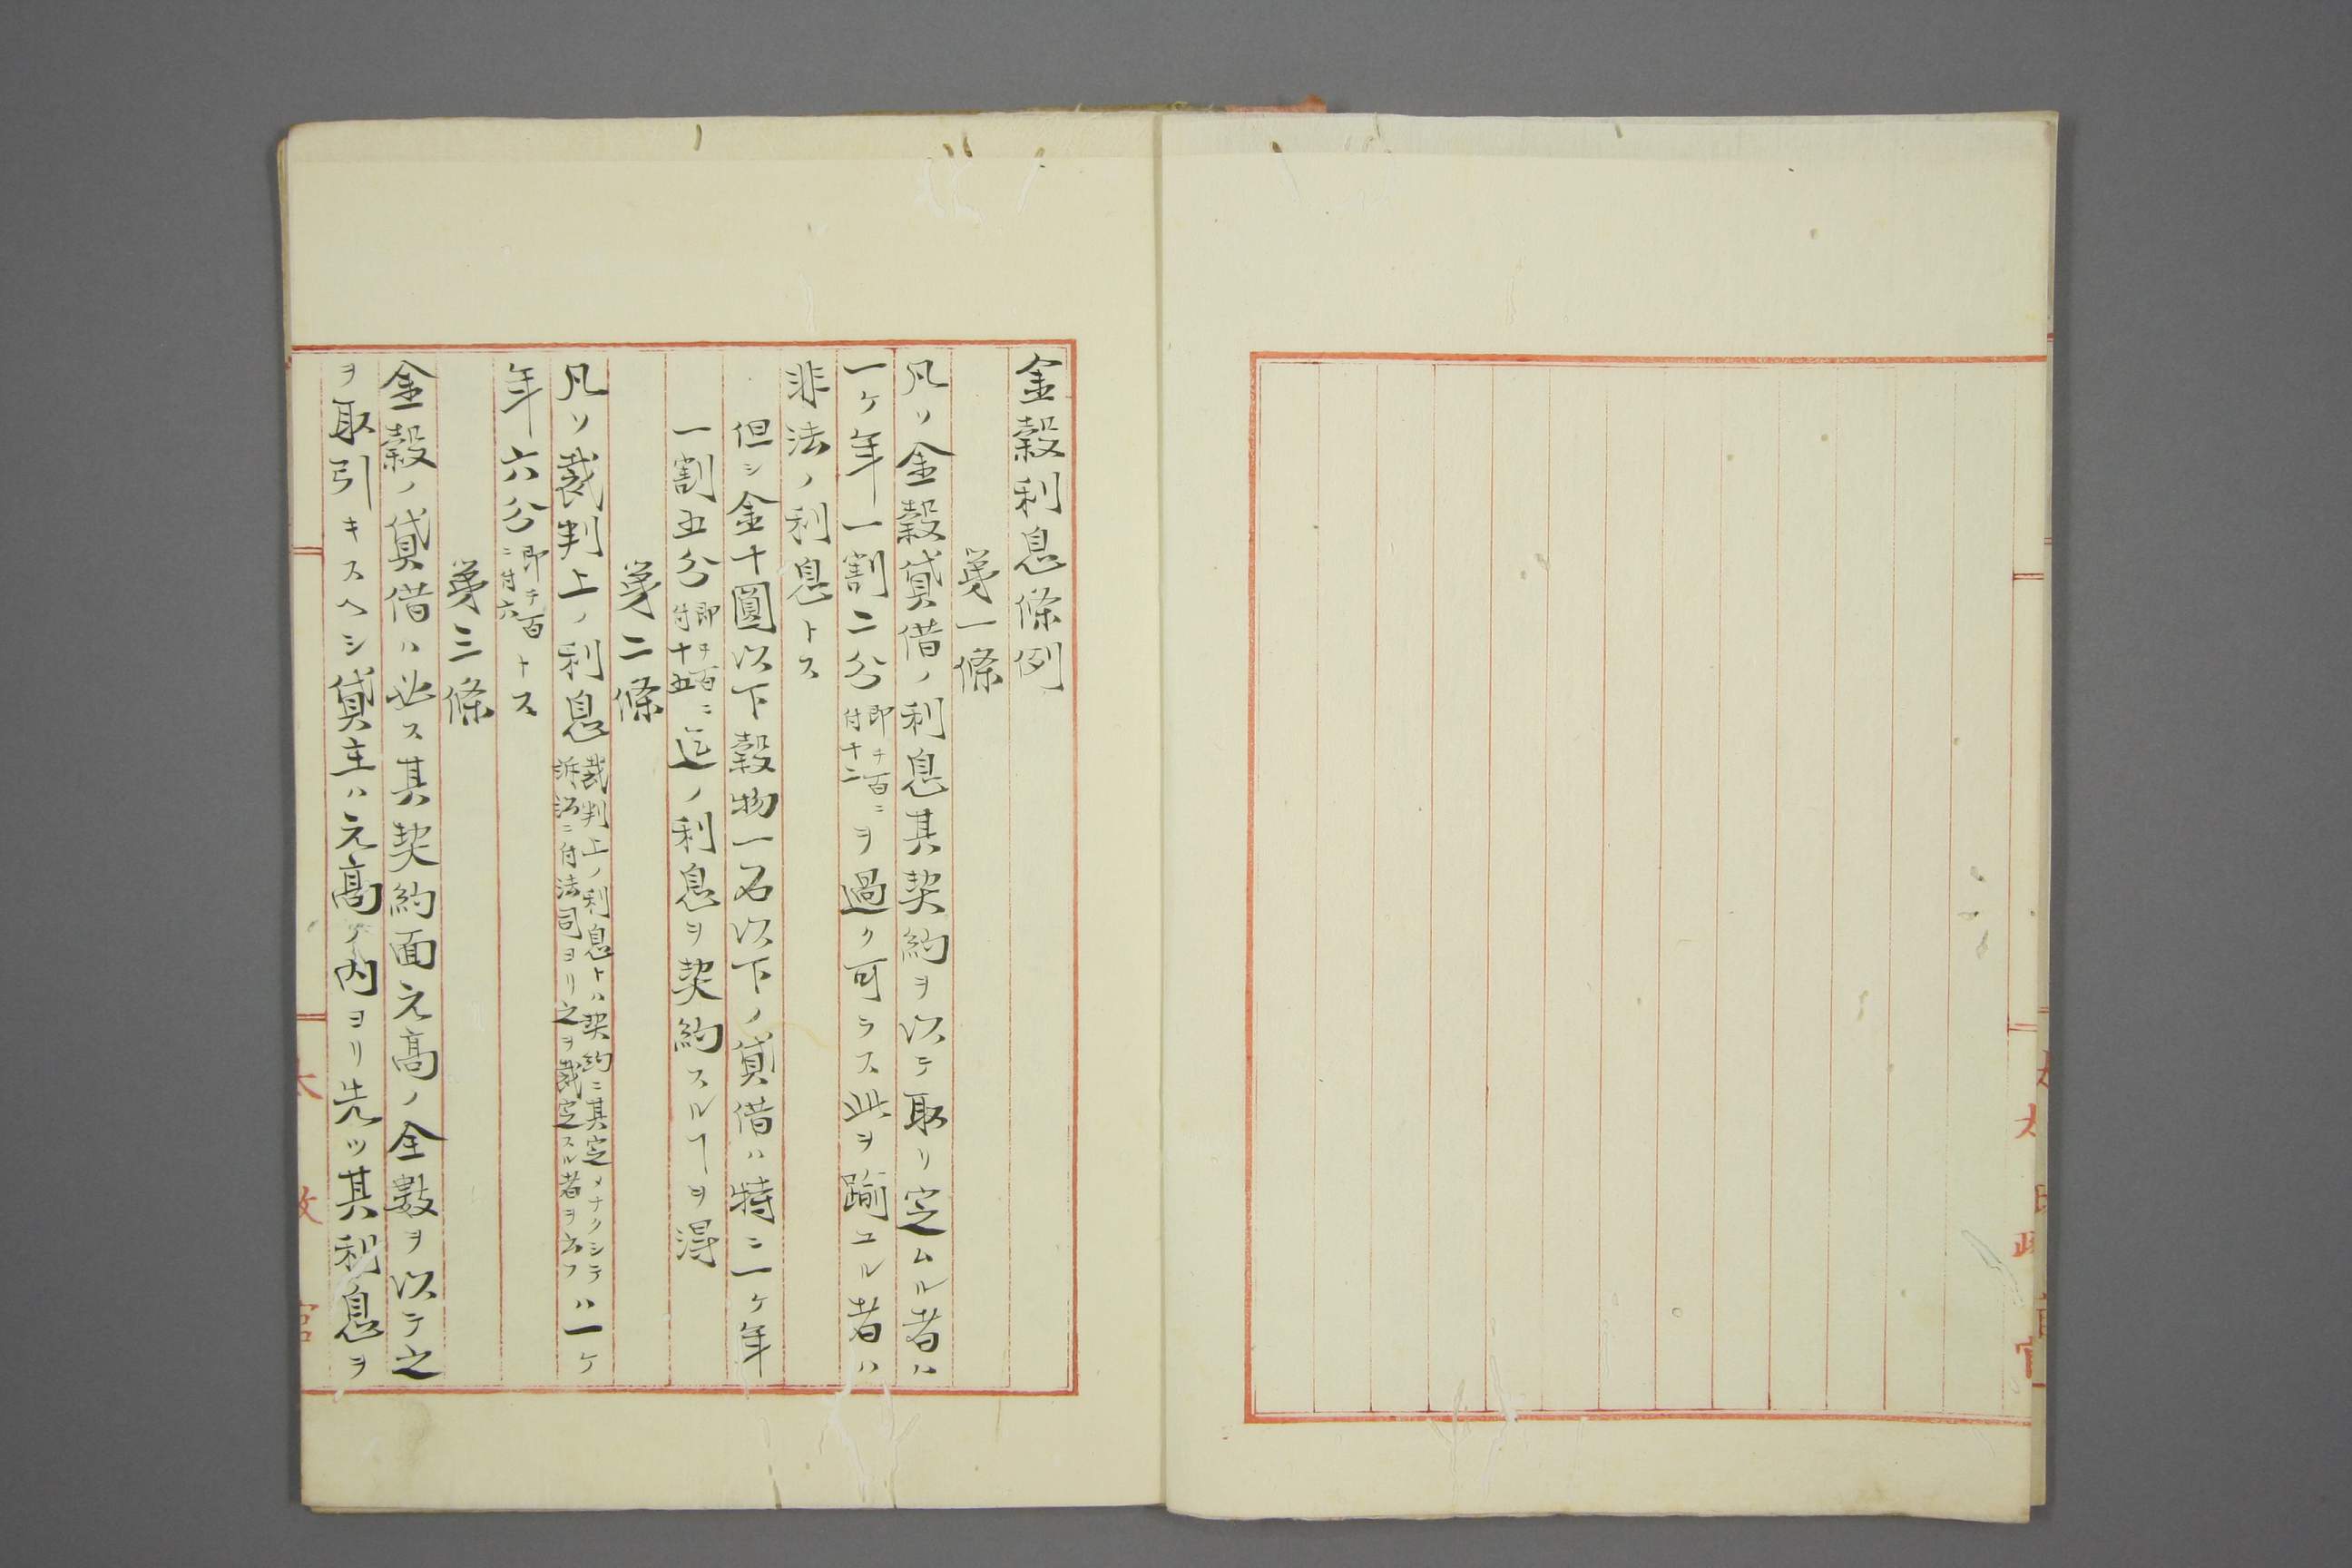 金穀利息條例
第一條
凡ソ金穀貸借ノ利息其契約ヲ以テ取リ定ムル者ハ
一ケ年一割二分即チ百ニ付十二ヲ過ク可ラス此ヲ踰ユル者ハ
非法ノ利息トス
但シ金十圓以下穀物一石以下ノ貸借ハ特ニ一ケ年
一割五分即チ百ニ付十五迄ノ利息ヲ契約スルヿヲ得
第二條
凡ソ裁判上ノ利息裁判上ノ利息トハ契約ニ其定メナクシテ訴訟ニ付法司ヨリ之ヲ裁定スル者ヲ云フハ一ケ
年六分即チ百ニ付六トス
第三條
金穀ノ貸借ハ必ス其契約面元髙ノ全數ヲ以テ之
ヲ取引キスヘシ貸主ハ元髙ノ内ヨリ先ツ其利息ヲ
太政官